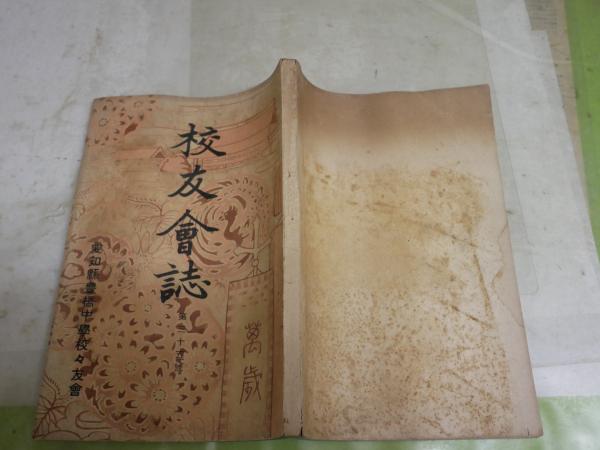 校友會誌
第二十五號
愛知縣豊橋中學校々友會
萬歲